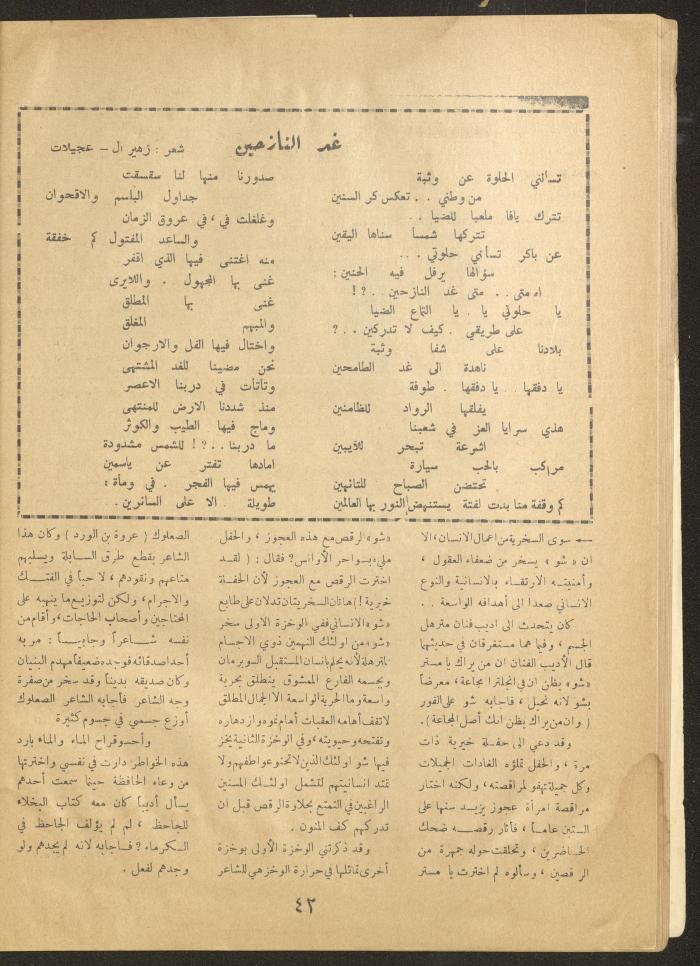 غد النازحين
شعر : زهير ال - عجيلات
تسألني الحلوة عن وثبة
من وطني . . تعكس كر السنين
تترك يافا ملعبا للضيا . .
تتركها شمساً سناها اليقين
عن باكر تسأني حلوتي . . .
سؤالها يرفل فيه الحنين :
اه متى . . متى غد النازحين . . ? !
يا حلوتي يا . يا التماع الضيا
على طريقي . كيف لا تدركين . . ?
بلادنا على شفا وثبة
ناهدة الى غد الطامحين
يا دفقها . . يا دفقها . طوفة
يفلقها الرواد للظامئين
هذي سرايا العز في شعبنا
اشرعة تبحر للآيبين
مراكب بالحب سيارة
تحتضن الصباح للتائهين
كم وقفة منا بدت لفتة يستنهض النور بها العالمين
صدورنا منها لنا سقسقت
جداول البلسم والاقحوان
وغلغلت في ، في عروق الزمان
والساعد المفتول كم خفقة
منه اغتنى فيها الذي اقفر
غنى بها المجهول . واللايرى
غنى بها المطلق
والمبهم المغلق
واختال فيها الفل والارجوان
نحن مضينا للغد المشتهى
وتأتأت في دربنا الاعصر
منذ شددنا الارض للمنتهى
وماج فيها الطيب والكوثر
ما دربنا . . ? ! للشمس مشدودة
امادها تفتر عن ياسمين
يهمس فيها الفجر . في ومأة :
طويلة . الا على السائرين .
سوى السخرية من اعمال الانسان ، الا
ان « شو » يسخر من ضعفاء العقول ،
وأمنيته الارتقاء بالانسانية والنوع
الانساني صعدا الى أهدافه الواسعة . .
كان يتحدث الى اديب فنان مترهل
الجسم ، وفيما هما مستغرقان في حديثهما
قال الأديب الفنان ان من يراك يا مستر
«شو» يظن ان في انجلترا مجاعة ، معرضاً
بشو لانه نحيل ، فاجابه شو على الفور
( وان من يراك يظن انك أصل المجاعة ) .
وقد دعي الى حفلة خيرية ذات
مرة ، والحفل تملؤه الغادات الجميلات
وكل جميلة تهفو لمراقصته ، ولكنه اختار
مراقصة امرأة عجوز يزيد سنها على
الستين عاماً ، فأثار رقصه ضحك
الحاضرين ، وتحلقت حوله جمهرة من
الرقصين ، وسألوه لم اخترت يا مستر
«شو» الرقص مع هذه العجوز ، والحفل
مليء بسواحر الأوانس ? فقال : ( لقد
اخترت الرقص مع العجوز لأن الحفلة
خيرية ! ) هاتان السخريتان تدلان على طابع
«شو» الانساني ففي الوخزة الاولى سخر
«شو» من اولئك النهمين ذوي الاجسام
المترهلة لأنه يحلم بانسان المستقبل السوبرمان
وبجسمه الفارع الممشوق ينطلق بحرية
واسعة وما الحرية الواسعة الا الجمال المطلق
لا تقف أمامه العقبات أمام نموه وازدهاره
وتفتحه وحيويته ، وفي الوخزة الثانية يخز
فيها شو اولئك الذين لا تحنو عواطفهم ولا
تمتد انسانيتهم لتشمل اولئك المسنين
الراغبين في التمتع بحلاوة الرقص قبل ان
تدركهم كف المنون .
وقد ذكرتني الوخزة الأولى بوخزة
أخرى تماثلها في حرارة الوخز هي للشاعر
الصعلوك ( عروة بن الورد ) وكان هذا
الشاعر يقطع طرق السابلة ويسلبهم
متاعهم ونقودهم ، لا حباً في الفتك
والاجرام ، ولكن لتوزيع ما ينهبه على
المحتاجين وأصحاب الحاجات ، وأقام من
نفسه شاعراً وجابياً : مر به
أحد اصدقائه فوجده ضعيفاً مهدم البنيان
وكان صديقه بديناً وقد سخر من صفرة
وجه الشاعر فأجابه الشاعر الصعلوك
أوزع جسمي في جسوم كثيرة
وأحسو قراح الماء والماء بارد
هذه الخواطر دارت في نفسي واختزنتها
من وعاء الحافظة حينما سمعت أحدهم
يسأل أديباً كان معه كتاب البخلاء
للجاحظ ، لم لم يؤلف الجاحظ في
الكرماء ? فاجابه لانه لم يجدهم ولو
وجدهم لفعل .
٤٢